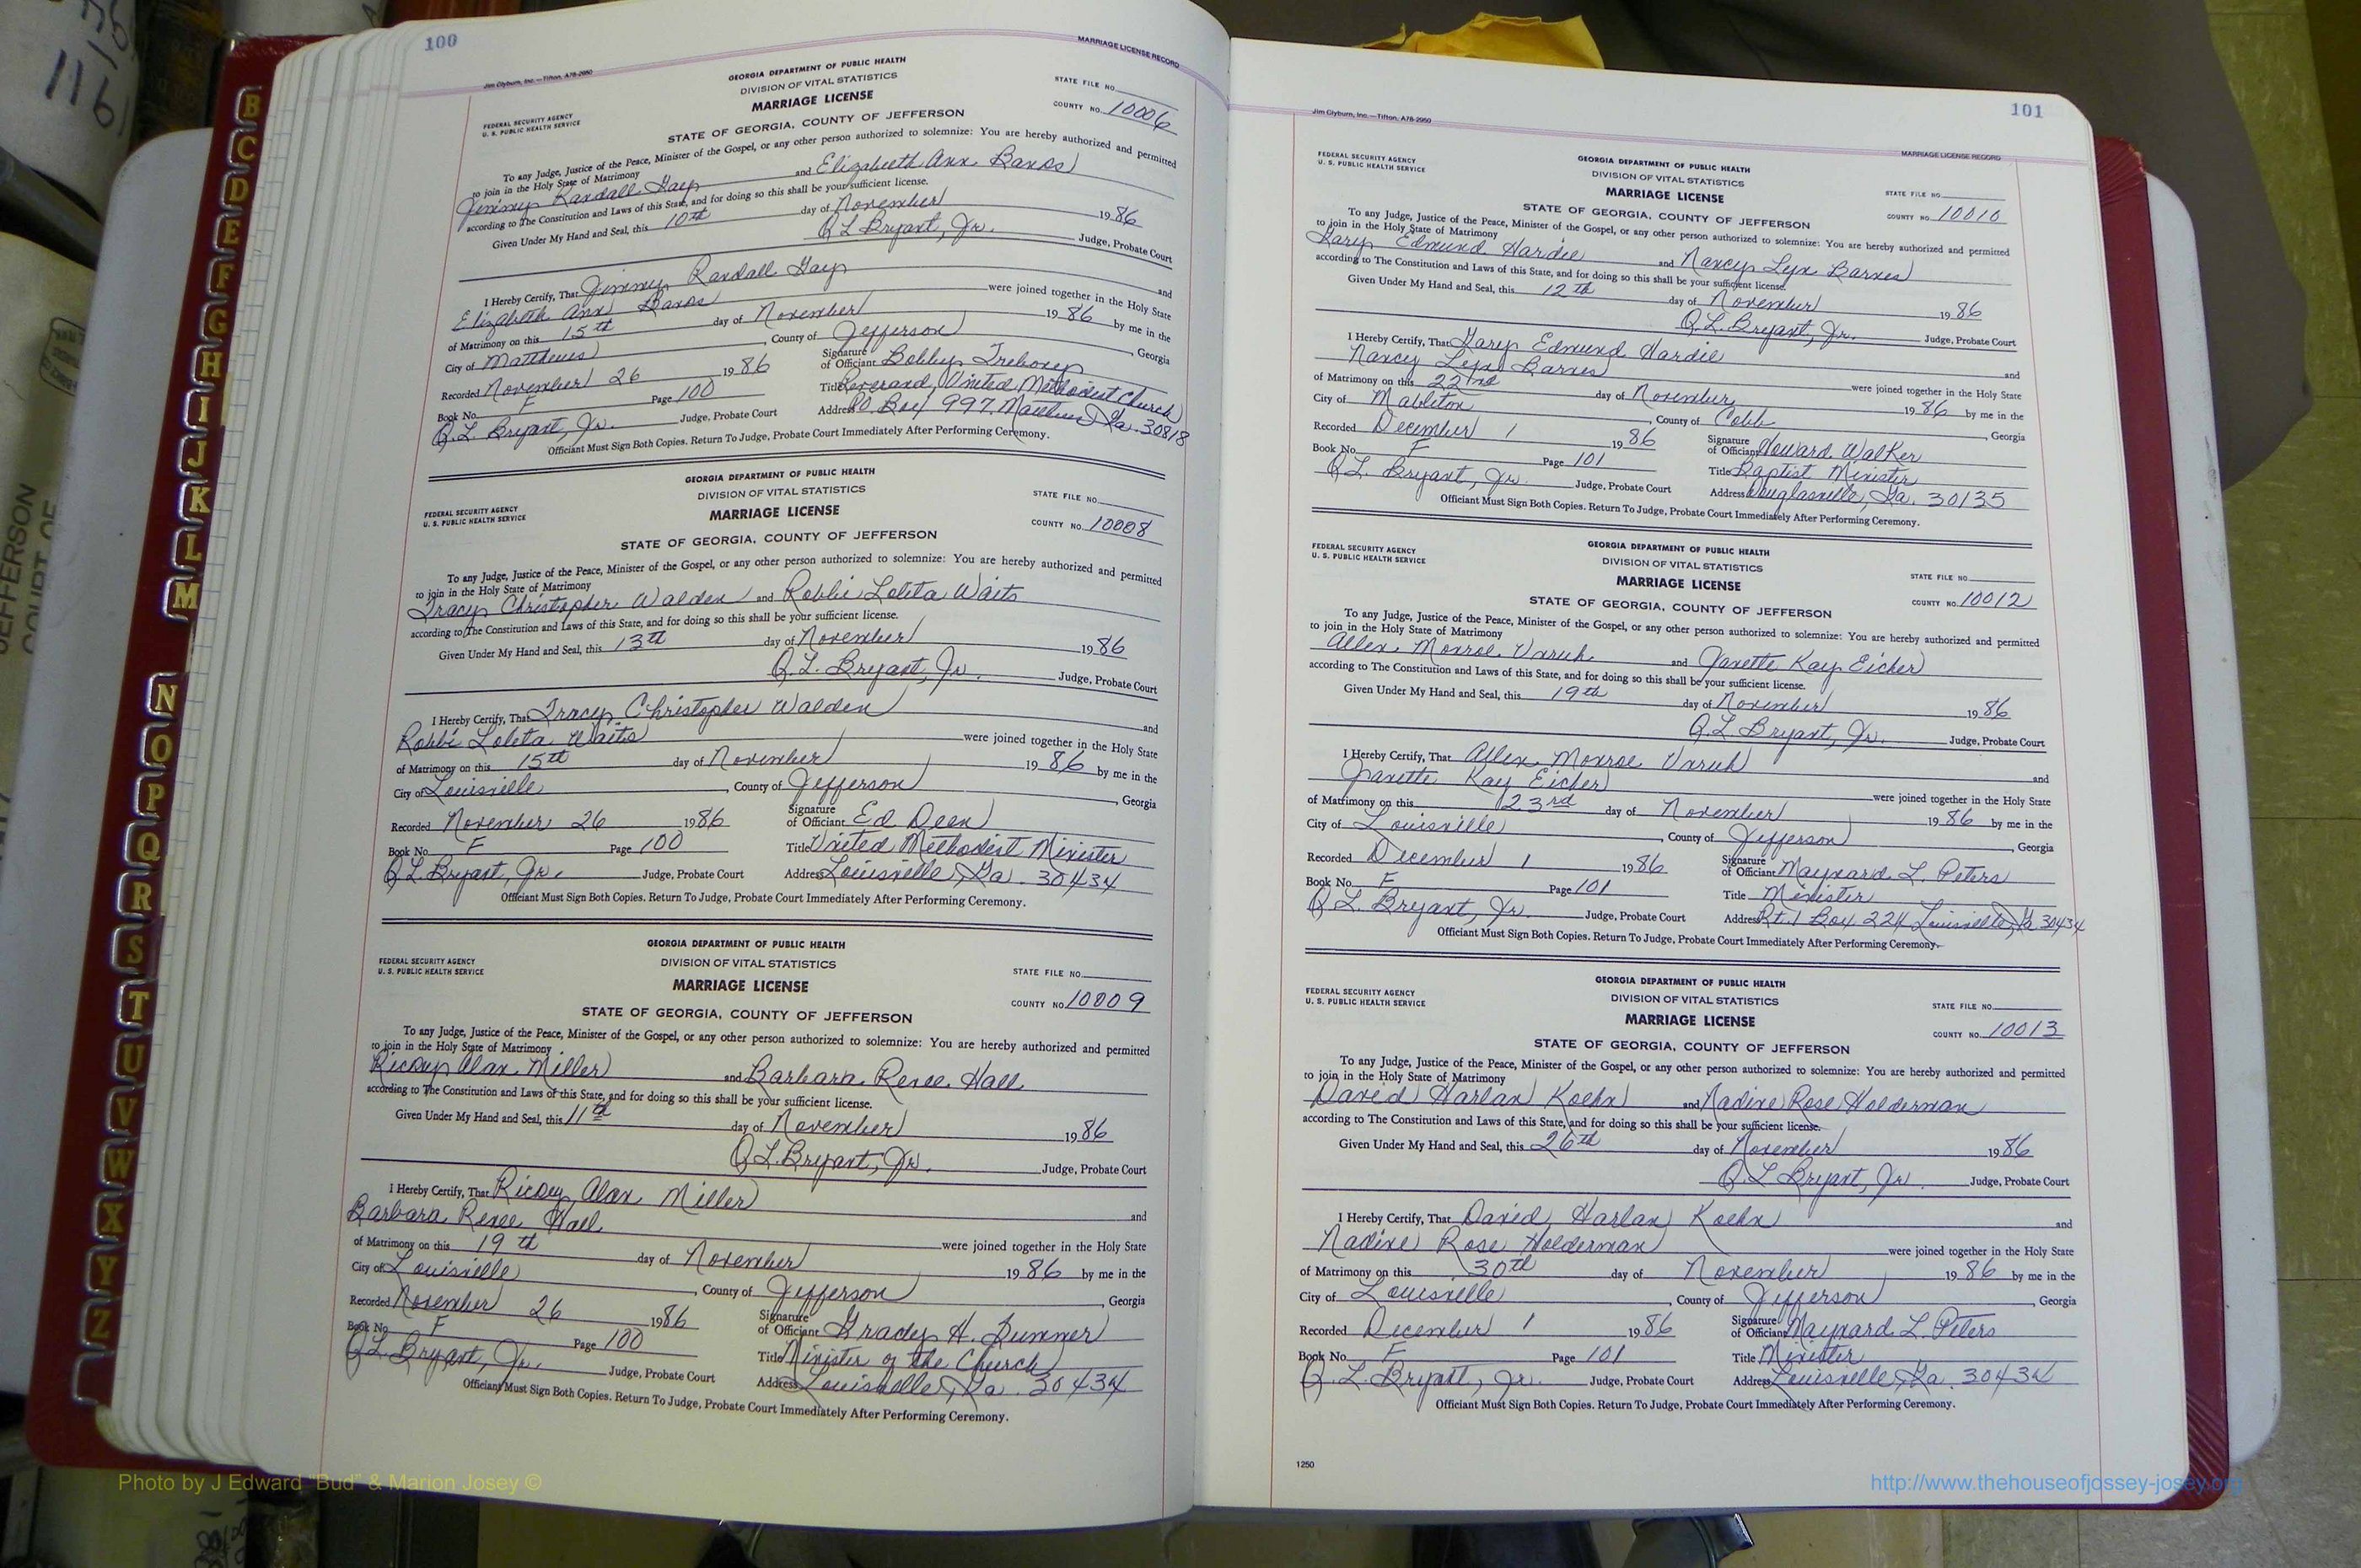 100
MARRIAGE LICENSE RECORD
Jim Clyburn, Inc.—Tifton, A78-2950
GEORGIA DEPARTMENT OF PUBLIC HEALTH
DIVISION OF VITAL STATISTICS
MARRIAGE LICENSE
STATE FILE NO.
COUNTY NO. 10006
FEDERAL SECURITY AGENCY
U. S. PUBLIC HEALTH SERVICE
STATE OF GEORGIA, COUNTY OF JEFFERSON
To any Judge, Justice of the Peace, Minister of the Gospel, or any other person authorized to solemnize: You are hereby authorized and permitted
to join in the Holy State of Matrimony
Jimmy Randall and Elizabeth Ann
according to The Constitution and Laws of this State, and for doing so this shall be your sufficient license.
Given Under My Hand and Seal, this 10th day of November 1986
Q L Bryant, Jr. Judge, Probate Court
I Hereby Certify, That Jimmy Randall and
Elizabeth Ann were joined together in the Holy State
of Matrimony on this 15th day of November 1986 by me in the
City of Matthews, County of Jefferson, Georgia
Recorded November 26 1986 Signature of Officiant Bobby
Book No. F Page 100 Title Reverand, United Methodist Church
Q.L. Bryant, Jr. Judge, Probate Court Address PO Box 997, Matthews, Ga. 30818
Officiant Must Sign Both Copies. Return To Judge, Probate Court Immediately After Performing Ceremony.
GEORGIA DEPARTMENT OF PUBLIC HEALTH
DIVISION OF VITAL STATISTICS
MARRIAGE LICENSE
STATE FILE NO.
COUNTY NO. 10008
FEDERAL SECURITY AGENCY
U. S. PUBLIC HEALTH SERVICE
STATE OF GEORGIA, COUNTY OF JEFFERSON
To any Judge, Justice of the Peace, Minister of the Gospel, or any other person authorized to solemnize: You are hereby authorized and permitted
to join in the Holy State of Matrimony
Tracy Christopher Walden and Robbie Loleta Waits
according to The Constitution and Laws of this State, and for doing so this shall be your sufficient license.
Given Under My Hand and Seal, this 13th day of November 1986
Q. L. Bryant, Jr. Judge, Probate Court
I Hereby Certify, That Tracy Christopher Walden and
Robbi Loleta Waits were joined together in the Holy State
of Matrimony on this 15th day of November 1986 by me in the
City of Louisville, County of Jefferson, Georgia
Recorded November 26 1986 Signature of Officiant Ed Deen
Book No. F Page 100 Title United Methodist Minister
Q L. Bryant, Jr. Judge, Probate Court Address Louisville, Ga. 30434
Officiant Must Sign Both Copies. Return To Judge, Probate Court Immediately After Performing Ceremony.
GEORGIA DEPARTMENT OF PUBLIC HEALTH
DIVISION OF VITAL STATISTICS
MARRIAGE LICENSE
STATE FILE NO.
COUNTY NO. 10009
FEDERAL SECURITY AGENCY
U. S. PUBLIC HEALTH SERVICE
STATE OF GEORGIA, COUNTY OF JEFFERSON
To any Judge, Justice of the Peace, Minister of the Gospel, or any other person authorized to solemnize: You are hereby authorized and permitted
to join in the Holy State of Matrimony
Rickey Alan Miller and Barbara Renee Hall
according to The Constitution and Laws of this State, and for doing so this shall be your sufficient license.
Given Under My Hand and Seal, this 11th day of November 1986
Q L. Bryant, Jr. Judge, Probate Court
I Hereby Certify, That Rickey Alan Miller and
Barbara Renee Hall were joined together in the Holy State
of Matrimony on this 19th day of November 1986 by me in the
City of Louisville, County of Jefferson, Georgia
Recorded November 26 1986 Signature of Officiant Grady H.
Book No. F Page 100 Title Minister of the Church
Q L. Bryant, Jr. Judge, Probate Court Address Louisville, Ga. 30434
Officiant Must Sign Both Copies. Return To Judge, Probate Court Immediately After Performing Ceremony.
101
Jim Clyburn, Inc.—Tifton, A78-2950
MARRIAGE LICENSE RECORD
FEDERAL SECURITY AGENCY
U. S. PUBLIC HEALTH SERVICE
GEORGIA DEPARTMENT OF PUBLIC HEALTH
DIVISION OF VITAL STATISTICS
MARRIAGE LICENSE
STATE FILE NO.
COUNTY NO. 10010
STATE OF GEORGIA, COUNTY OF JEFFERSON
To any Judge, Justice of the Peace, Minister of the Gospel, or any other person authorized to solemnize: You are hereby authorized and permitted
to join in the Holy State of Matrimony
Gary Edmund Hardie and Nancy Lyn Barnes
according to The Constitution and Laws of this State, and for doing so this shall be your sufficient license.
Given Under My Hand and Seal, this 12th day of November 1986
Q.L. Bryant, Jr. Judge, Probate Court
I Hereby Certify, That Gary Edmund Hardie and
Nancy Lyn Barnes were joined together in the Holy State
of Matrimony on this 22nd day of November 1986 by me in the
City of Mableton, County of Cobb, Georgia
Recorded December 1 1986 Signature of Officiant Howard Walker
Book No. F Page 101 Title Baptist Minister
Q L. Bryant, Jr. Judge, Probate Court Address Douglasville, Ga. 30135
Officiant Must Sign Both Copies. Return To Judge, Probate Court Immediately After Performing Ceremony.
FEDERAL SECURITY AGENCY
U. S. PUBLIC HEALTH SERVICE
GEORGIA DEPARTMENT OF PUBLIC HEALTH
DIVISION OF VITAL STATISTICS
MARRIAGE LICENSE
STATE FILE NO.
COUNTY NO. 10012
STATE OF GEORGIA, COUNTY OF JEFFERSON
To any Judge, Justice of the Peace, Minister of the Gospel, or any other person authorized to solemnize: You are hereby authorized and permitted
to join in the Holy State of Matrimony
Allen Monroe Unruh and Janette Kay Eicher
according to The Constitution and Laws of this State, and for doing so this shall be your sufficient license.
Given Under My Hand and Seal, this 19th day of November 1986
Q.L Bryant, Jr. Judge, Probate Court
I Hereby Certify, That Allen Monroe Unruh and
Janette Kay Eicher were joined together in the Holy State
of Matrimony on this 23rd day of November 1986 by me in the
City of Louisville, County of Jefferson, Georgia
Recorded December 1 1986 Signature of Officiant Maynard L. Peters
Book No. F Page 101 Title Minister
Q L. Bryant, Jr. Judge, Probate Court Address Rt. 1 Box 224 Louisville, Ga 30434
Officiant Must Sign Both Copies. Return To Judge, Probate Court Immediately After Performing Ceremony.
GEORGIA DEPARTMENT OF PUBLIC HEALTH
DIVISION OF VITAL STATISTICS
MARRIAGE LICENSE
FEDERAL SECURITY AGENCY
U. S. PUBLIC HEALTH SERVICE
STATE FILE NO.
COUNTY NO. 10013
STATE OF GEORGIA, COUNTY OF JEFFERSON
To any Judge, Justice of the Peace, Minister of the Gospel, or any other person authorized to solemnize: You are hereby authorized and permitted
to join in the Holy State of Matrimony
David Harlan Koehn and Nadine Rose Holdeman
according to The Constitution and Laws of this State, and for doing so this shall be your sufficient license.
Given Under My Hand and Seal, this 26th day of November 1986
Q.L Bryant, Jr. Judge, Probate Court
I Hereby Certify, That David Harlan Koehn and
Nadine Rose Holderman were joined together in the Holy State
of Matrimony on this 30th day of November 1986 by me in the
City of Louisville, County of Jefferson, Georgia
Recorded December 1 1986 Signature of Officiant Maynard L. Peters
Book No. F Page 101 Title Minister
Q.L. Bryant, Jr. Judge, Probate Court Address Louisville, Ga. 30434
Officiant Must Sign Both Copies. Return To Judge, Probate Court Immediately After Performing Ceremony.
1250
B
C
D
E
F
G
H
I
J
K
L
M
N
O
P
Q
R
S
T
U
V
W
X
Y
Z
Photo by J Edward "Bud" & Marion Josey ©
http://www.thehouseofjossey-josey.org